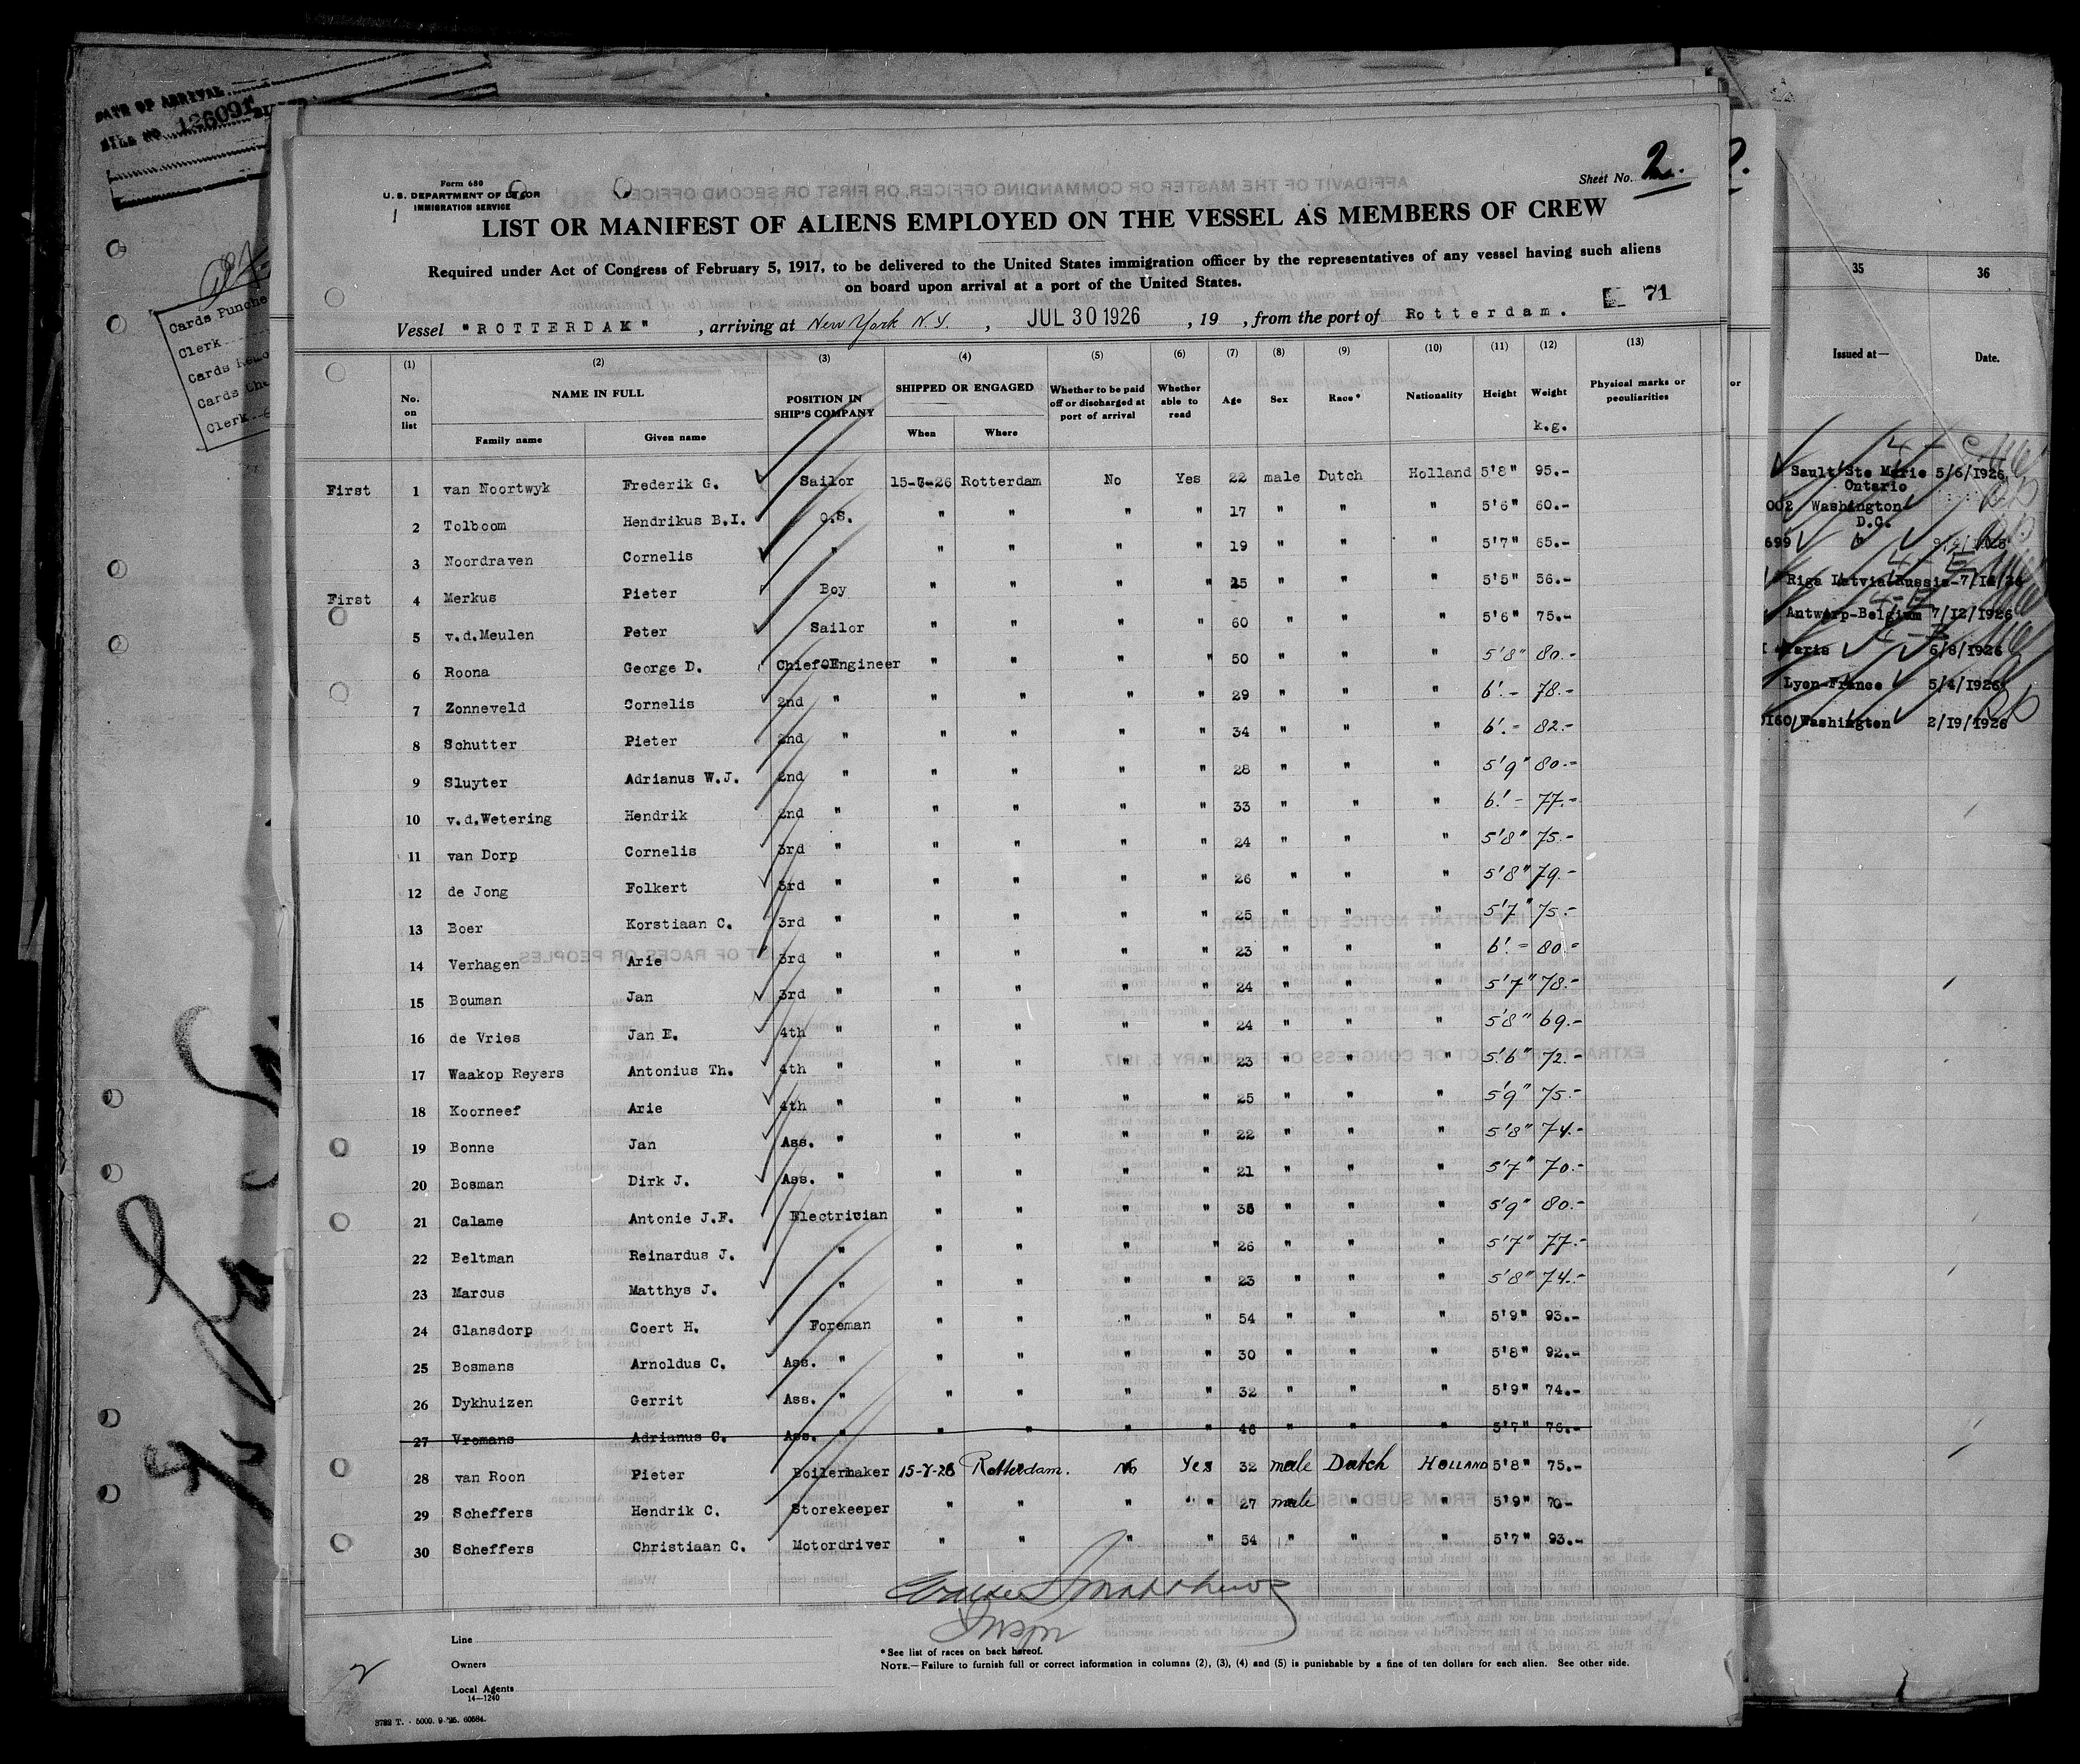 DATE OF ARRIVAL
BILL NO. 126091
Cards Punche
Clerk
Cards
Cards Che
Clerk
Form 680
U. S. DEPARTMENT OF LABOR
IMMIGRATION SERVICE
Sheet No. 2.
LIST OR MANIFEST OF ALIENS EMPLOYED ON THE VESSEL AS MEMBERS OF CREW
Required under Act of Congress of February 5, 1917, to be delivered to the United States immigration officer by the representatives of any vessel having such aliens
on board upon arrival at a port of the United States.
71
Vessel "ROTTERDAM" , arriving at New York N.Y. , JUL 30 1926 , 19 , from the port of Rotterdam.
(1) (2) (3) (4) (5) (6) (7) (8) (9) (10) (11) (12) (13)
No. on list NAME IN FULL Family name Given name POSITION IN SHIP'S COMPANY SHIPPED OR ENGAGED When Where Whether to be paid off or discharged at port of arrival Whether able to read Age Sex Race* Nationality Height Weight k.g. Physical marks or peculiarities
First 1 van Noortwyk Frederik G. Sailor 15-7-26 Rotterdam No Yes 22 male Dutch Holland 5'8" 95.-
2 Tolboom Hendrikus B.I. O.S. " " " " 17 " " " 5'6" 60.-
3 Noordraven Cornelis " " " " " 19 " " " 5'7" 65.-
First 4 Merkus Pieter Boy " " " " 15 " " " 5'5" 56.-
5 v.d.Meulen Peter Sailor " " " " 60 " " " 5'6" 75.-
6 Roona George D. Chief Engineer " " " " 50 " " " 5'8" 80.-
7 Zonneveld Cornelis 2nd " " " " " 29 " " " 6'.- 78.-
8 Schutter Pieter 2nd " " " " " 34 " " " 6'.- 82.-
9 Sluyter Adrianus W.J. 2nd " " " " " 28 " " " 5'9" 80.-
10 v.d.Wetering Hendrik 2nd " " " " " 33 " " " 6'.- 77.-
11 van Dorp Cornelis 3rd " " " " " 24 " " " 5'8" 75.-
12 de Jong Folkert 3rd " " " " " 26 " " " 5'8" 79.-
13 Boer Korstiaan C. 3rd " " " " " 25 " " " 5'7" 75.-
14 Verhagen Arie 3rd " " " " " 23 " " " 6'.- 80.-
15 Bouman Jan 3rd " " " " " 24 " " " 5'7" 78.-
16 de Vries Jan E. 4th " " " " " 24 " " " 5'8" 69.-
17 Waakop Reyers Antonius Th. 4th " " " " " 23 " " " 5'6" 72.-
18 Koorneef Arie 4th " " " " " 25 " " " 5'9" 75.-
19 Bonne Jan Ass. " " " " " 22 " " " 5'8" 74.-
20 Bosman Dirk J. Ass. " " " " " 21 " " " 5'7" 70.-
21 Calame Antonie J.F. Electrician " " " " " " " 5'9" 80.-
22 Beltman Reinardus J. " " " " " 26 " " " 5'7" 77.-
23 Marcus Matthys J. " " " " " 23 " " " 5'8" 74.-
24 Glansdorp Coert H. Foreman " " " " 54 " " " 5'9" 93.-
25 Bosmans Arnoldus C. Ass. " " " " " 30 " " " 5'8" 92.-
26 Dykhuizen Gerrit Ass. " " " " " 32 " " " 5'9" 74.-
27 Vromans Adrianus C. Ass. " " " " " 46 " " " 5'7" 76.-
28 van Roon Pieter Boilermaker 15-7-26 Rotterdam. No Yes 32 male Dutch HOLLAND 5'8" 75.-
29 Scheffers Hendrik C. Storekeeper " " " " 27 male " " 5'9" 70-
30 Scheffers Christiaan C. Motordriver " " " " 54 " " " 5'7" 93.-
Matthews
Inspr
Line
Owners
Local Agents
14—1240
*See list of races on back hereof.
NOTE.—Failure to furnish full or correct information in columns (2), (3), (4) and (5) is punishable by a fine of ten dollars for each alien. See other side.
2
3782 T. - 5000. 9-'25. 60584.
2.
or
35 36
Issued at— Date.
Sault Ste Marie 5/6/1926
Ontario
002 Washington
D.C.
699 "
Riga Latvia Russia-7/
Antwerp-Belgium 7/12/1926
Paris 6/8/1926
Lyon-France 5/4/1926
0160 Washington 2/19/1926